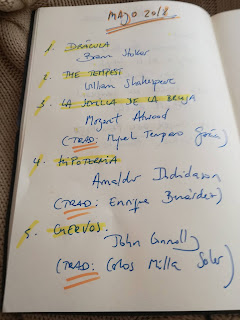 MAYO 2018
1. DRÁCULA
Bram Stoker
2. THE TEMPEST
William Shakespeare
3. LA SEMILLA DE LA BRUJA
Margaret Atwood
(TRAD: Miguel Temprano García)
4. HIPOTERMIA
Arnaldur Indridason
(TRAD: Enrique Bernárdez)
5. CUERVOS.
John Connolly
(TRAD: Carlos Milla Soler)